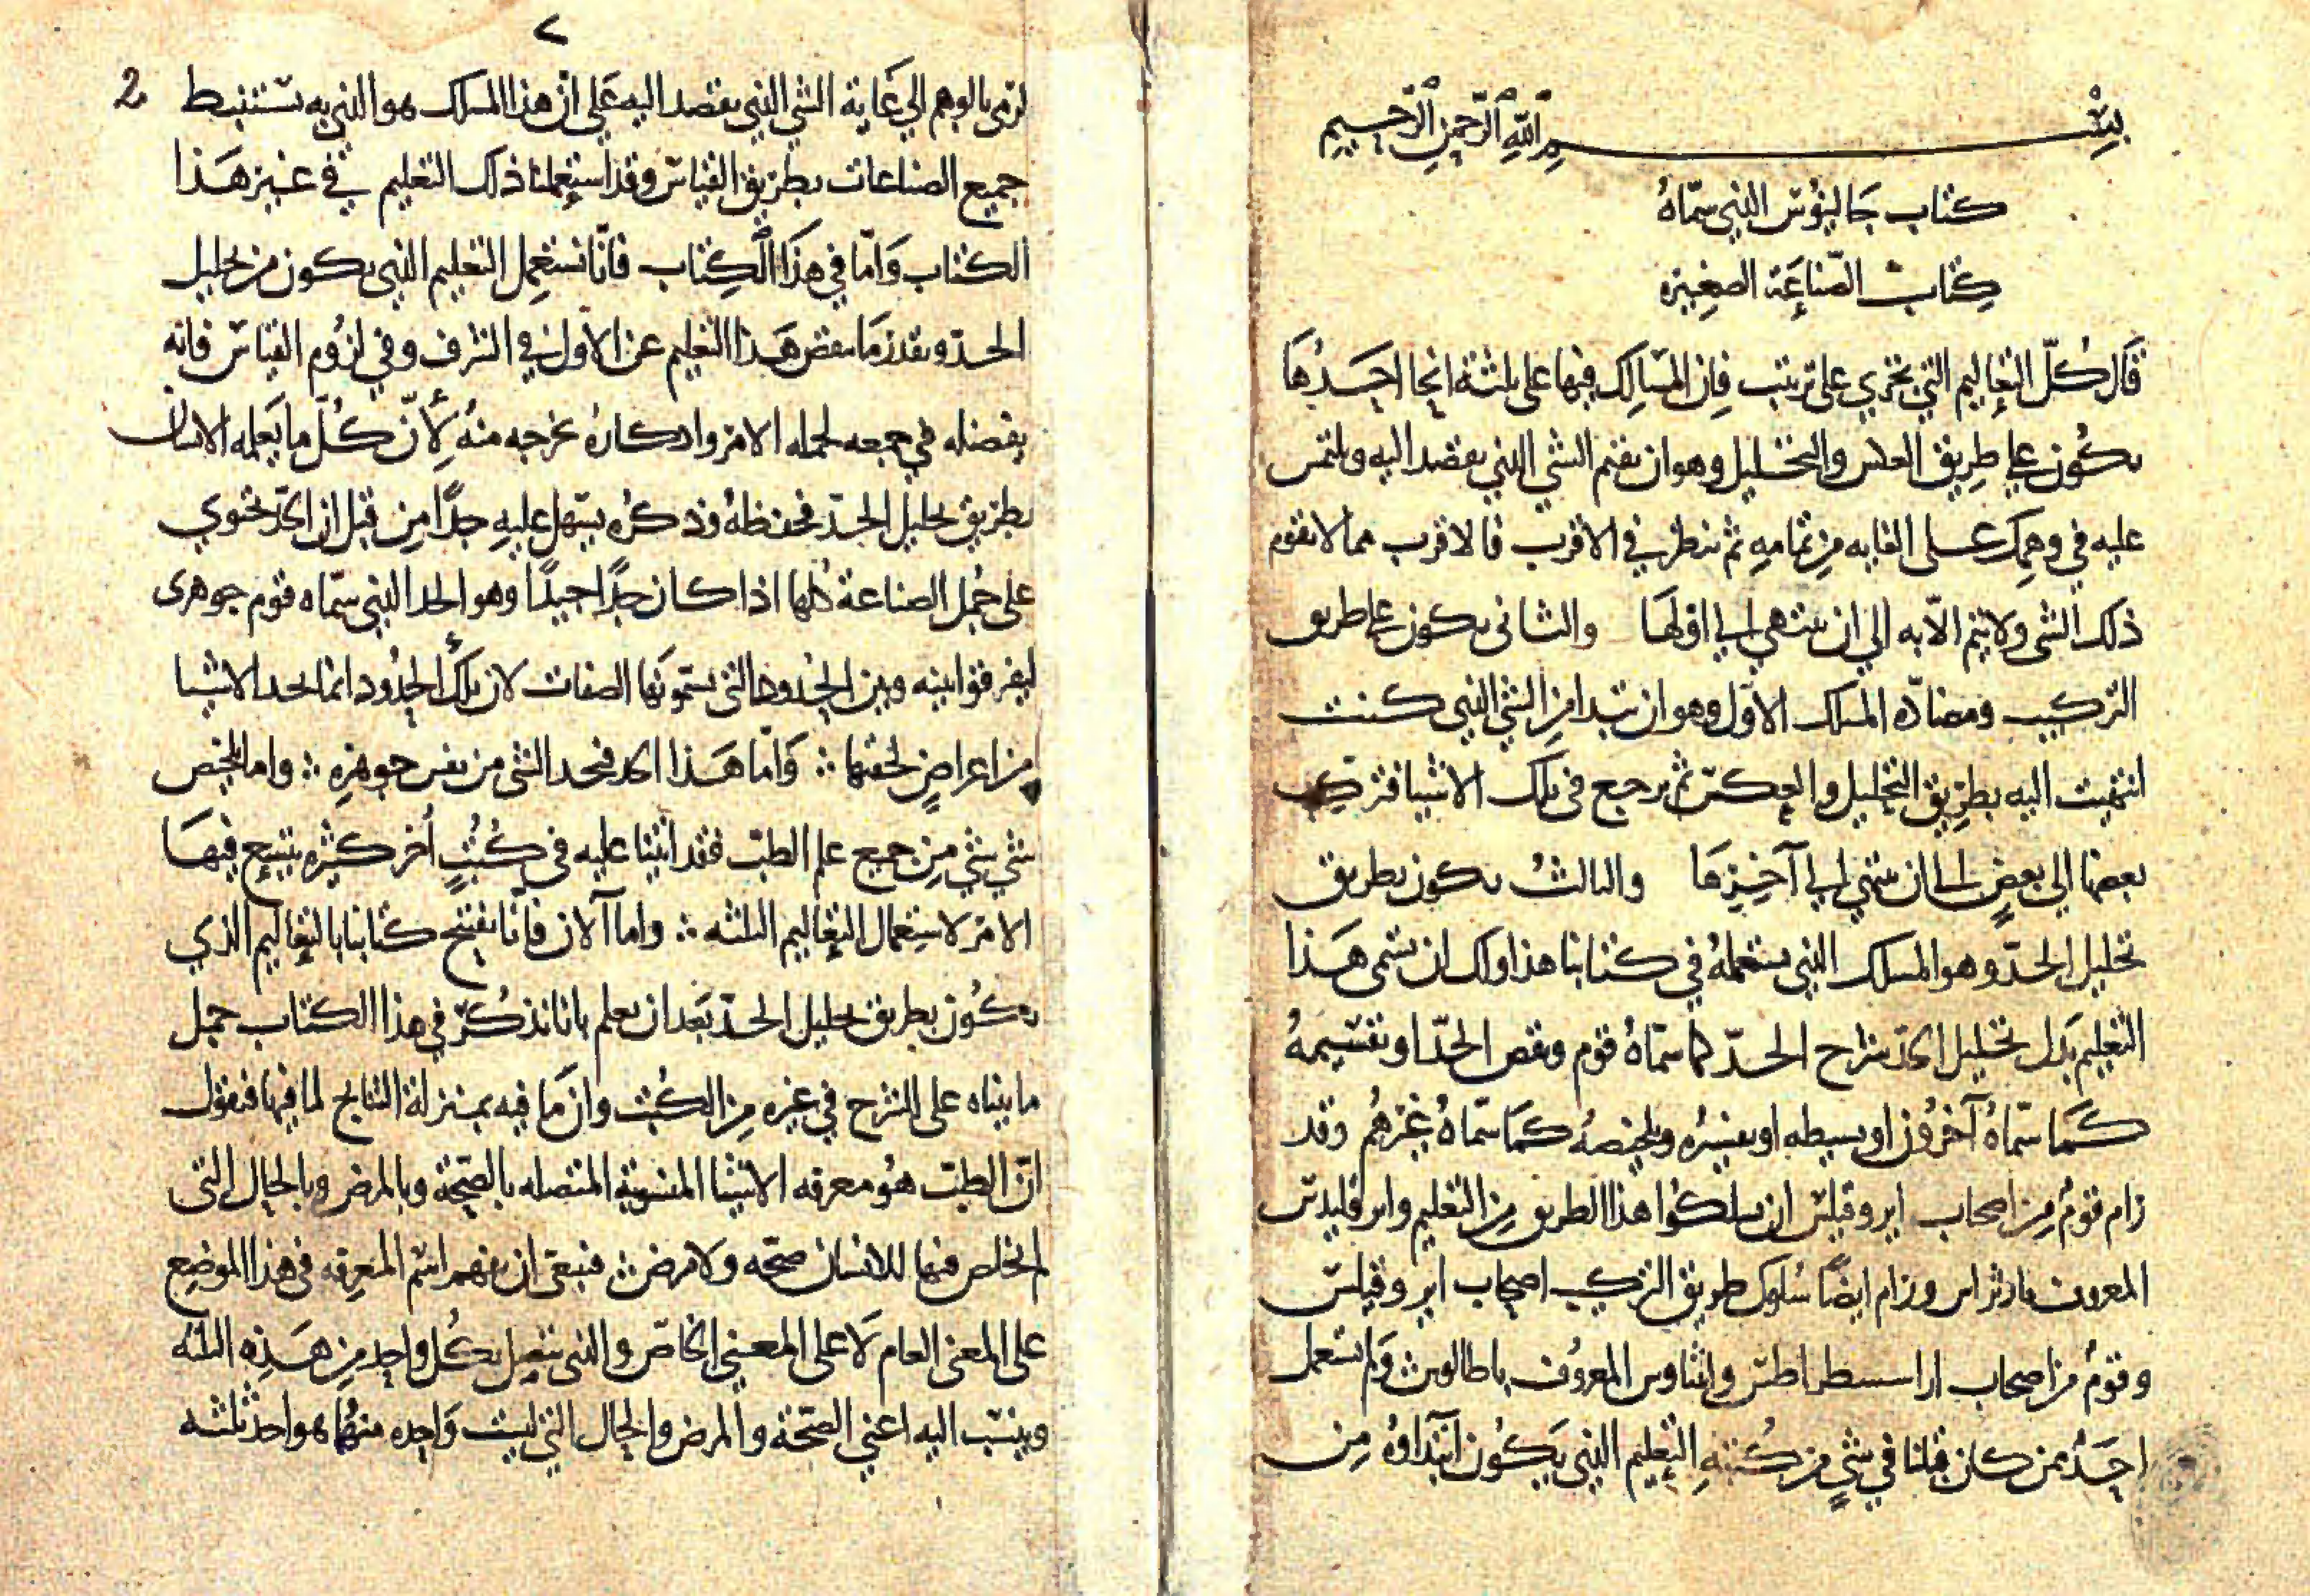 بسم الله الرحمن الرحيم
كتاب جالينوس الذي سماه
كتاب الصناعة الصغيرة
قال كل التعاليم التي تجري على ترتيب فان المسالك فيها على ثلثة انحا احدها
يكون على طريق العكس والتحليل وهو ان تقيم الشي الذي تقصد اليه وتلتمس
علمه في وهمك على الغايه من تمامه ثم تنظر في الاقرب فالاقرب مما لا تقوم
ذلك الشي ولا يتم الا به الي ان تنتهي الي اولها والثاني يكون على طريق
التركيب ومضاده المسلك الاول وهو ان تبتدا من الشي الذي كنت
انتهيت اليه بطريق التحليل والعكس ثم ترجع في تلك الاشيا فتركب
بعضها الى بعض الى ان تنتهي الي آخرها والثالث يكون بطريق
تحليل الحد وهو المسلك الذي نستعمله في كتابنا هذا ولك ان تسمى هذا
التعليم بدل تحليل الحد شرح الحد كما سماه قوم ونقض الحد او تقسيمه
كما سماه آخرون او بسيطه او تفسيره وتلخيصه كما سماه غيرهم وقد
رام قوم من اصحاب ايروفيلس ان يسلكوا هذا الطريق من التعليم وايرقليدس
المعروف ورام ايضا سلوك طريق التركيب اصحاب ايروفيلس
وقوم من اصحاب اراسسطراطس واثناوس المعروف ولم يستعمل
احد ممن كان قبلنا في شي من كتبه التعليم الذي يكون ابتداوه من
٢
لزم بالوهم الي غاية الشي الذي يقصد اليه على ان هذا المسلك هو الذي به تستنبط 2
جميع الصناعات بطريق القياس وقد استعملنا ذلك التعليم في غير هذا
الكتاب واما في هذا الكتاب فانا نستعمل التعليم الذي يكون من تحليل
الحد وبقدر ما ينقص هذا التعليم عن الاول في الشرف وفي لزوم القياس فانه
يفضله في جمعه لجمله الامر واذكاره بخرجه منه لان كل ما يعلمه الانسان
بطريق تحليل الحد فحفظه وذكره يسهل عليه جدا من قبل ان الحد تحتوي
على جمل الصناعة كلها اذا كان حدا جيدا وهو الحد الذي سماه قوم جوهرى
ليفرقوا بينه وبين الحدود التي يسمونها الصفات لان تلك الحدود انما تحد الاشيا
من اعراض لحقتها ∴ واما هذا الحد فيحد الشي من نفس جوهره ∴ واما تلخيص
شي شي من جميع علم الطب فقد اتينا عليه في كتب أخر كثيره يتسع فيها
الامر لاستعمال التعاليم الثلثه ∴ واما الان فانا نفتتح كتابنا بالتعاليم الذي
يكون بطريق تحليل الحد بعد ان نعلم بانا نذكر في هذا الكتاب جمل
ما بيناه على الشرح في غيره من الكتب وان ما فيه بمنزلة النتايج لما فيها فنقول
ان الطب هو معرفه الاشيا المنسوبة المتصله بالصحة وبالمرض وبالحال التي
لم تخلص فيها للانسان صحه ولا مرض ∴ فينبغي ان يفهم اسم المعرفه في هذا الموضع
على المعنى العام لا على المعني الخاص والذي يتصل بكل واحد من هذه الثلثه
وينسب اليه اعني الصحة والمرض والحال التي ليست واحده منهما هو احد ثلثه